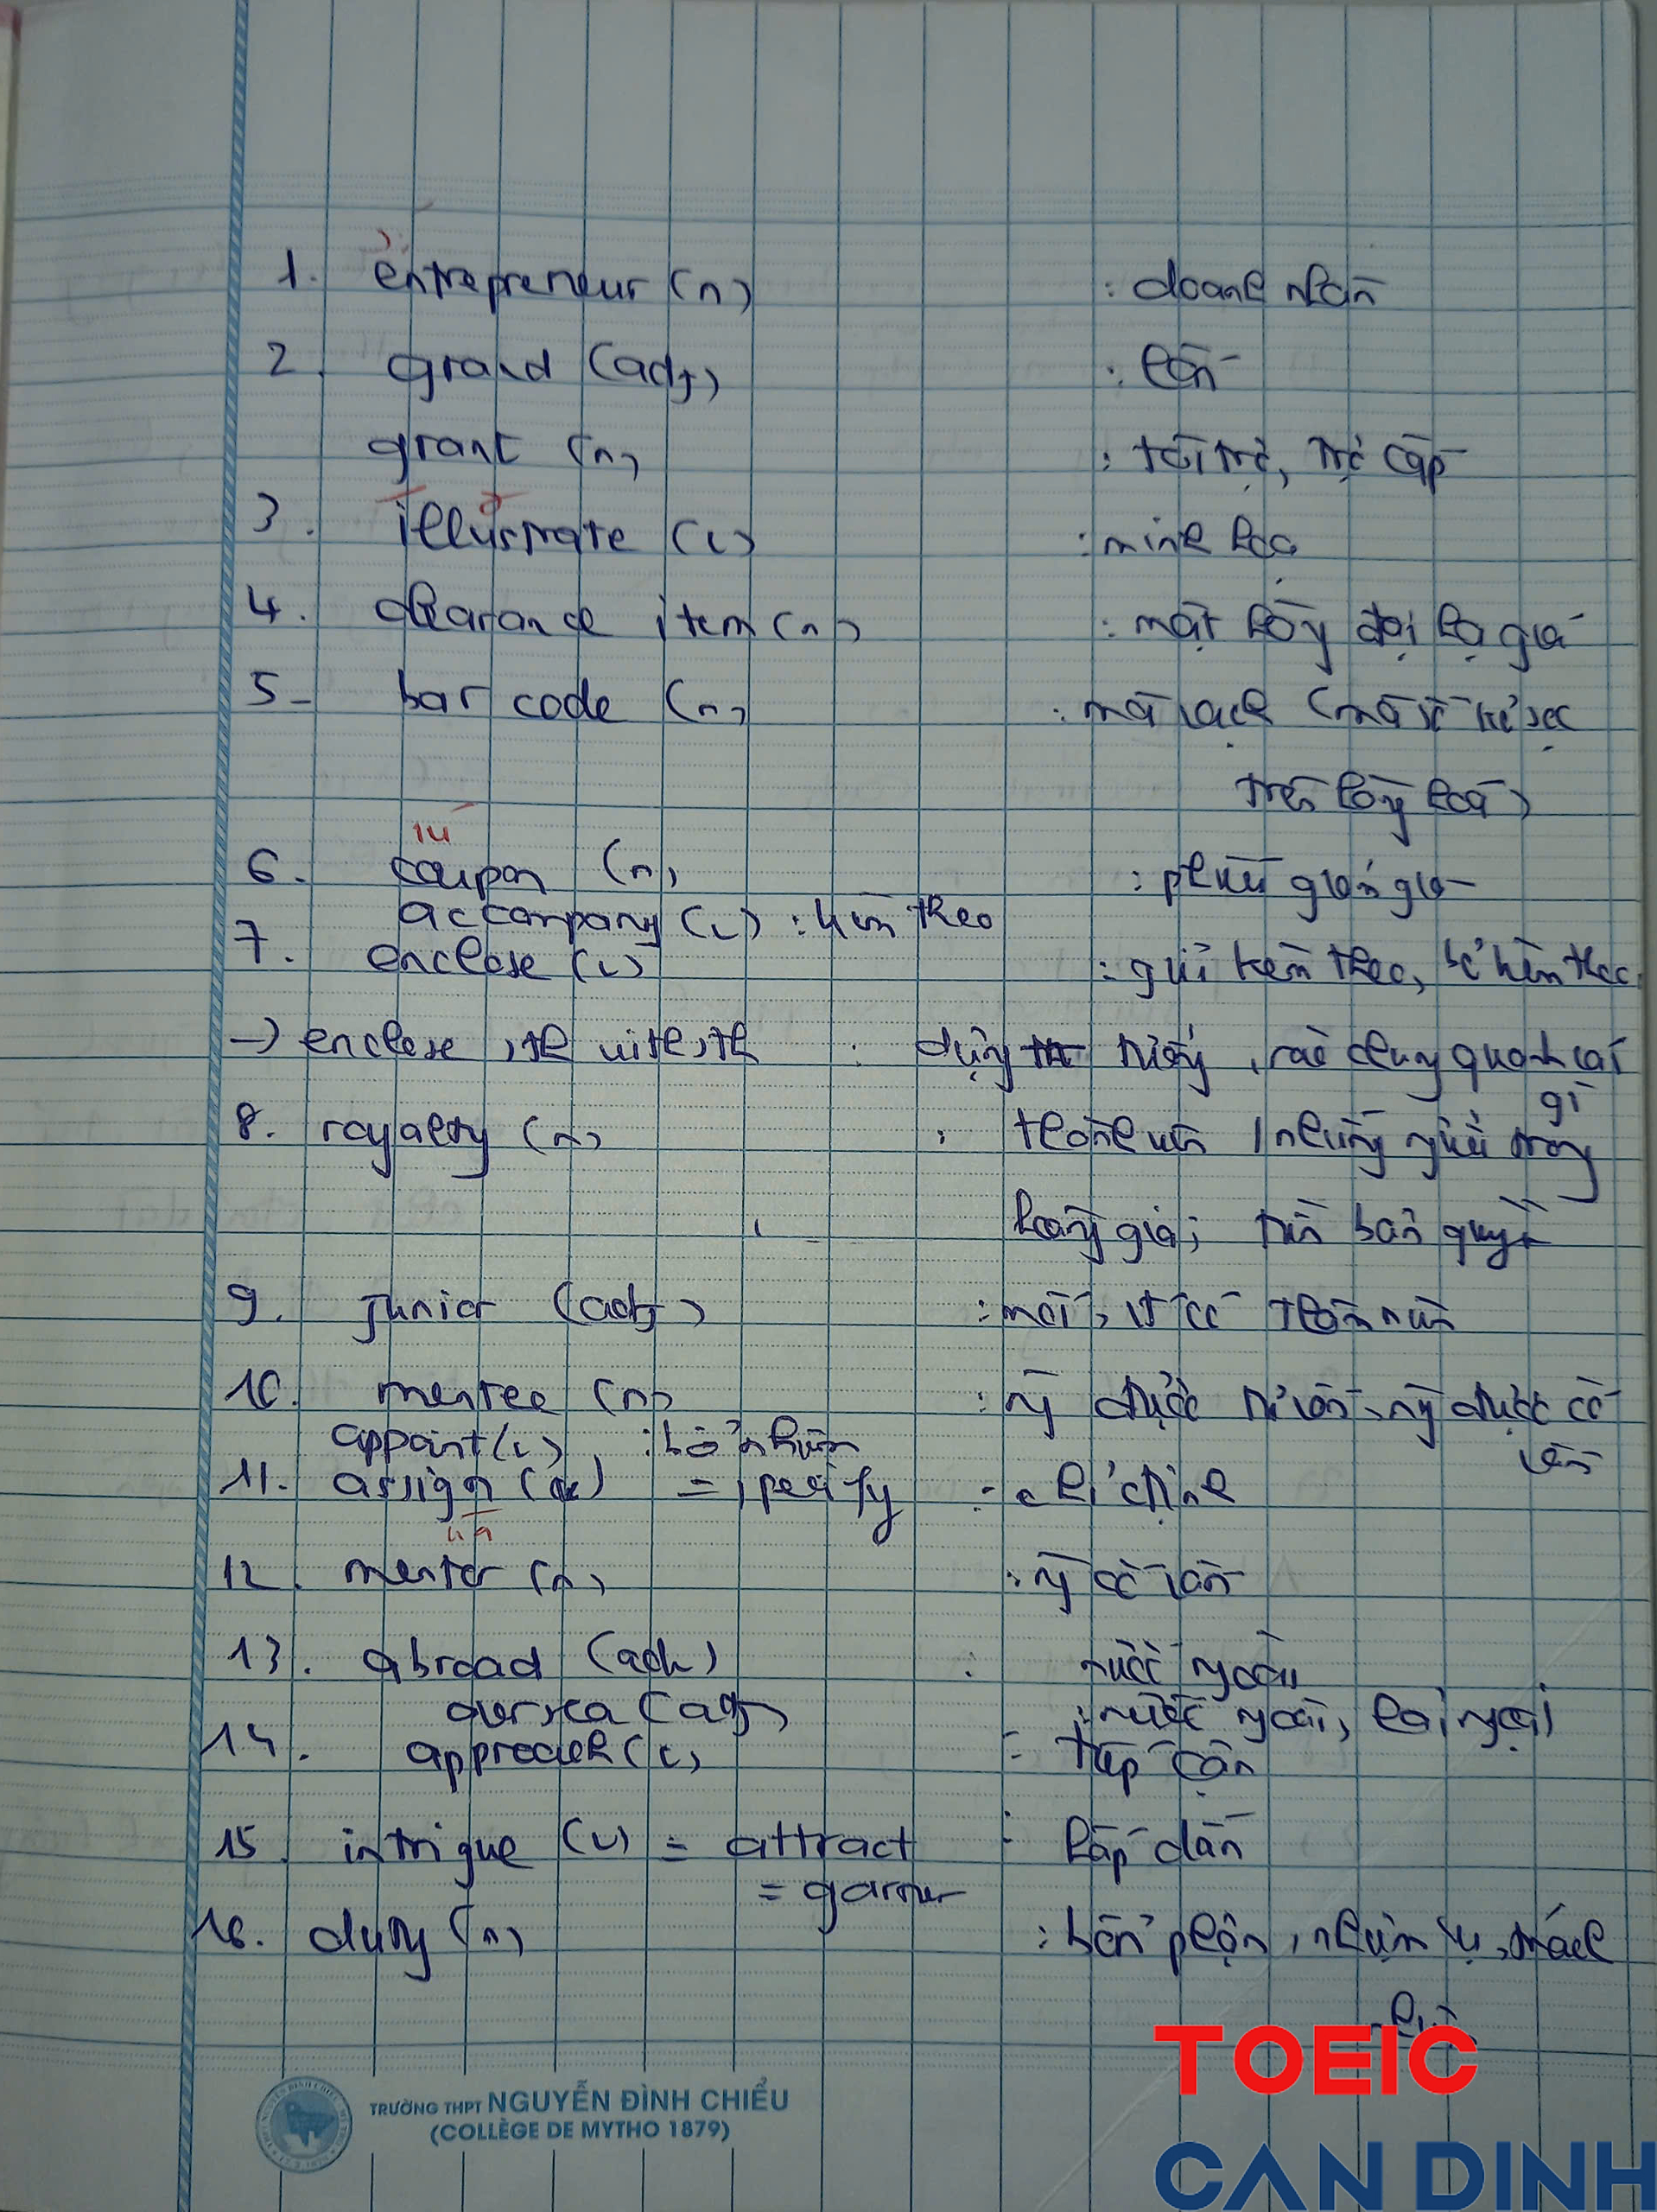 1. entrepreneur (n) : doanh nhân
2. grand (adj) : lớn
grant (n) : tài trợ, trợ cấp
3. illustrate (v) : minh hoạ
4. clearance item (n) : mặt hàng đại hạ giá
5- bar code (n) : mã vạch (mã số kẻ sọc
trên hàng hoá)
6. coupon (n) : phiếu giảm giá
accompany (v) : kèm theo
7. enclose (v) : gửi kèm theo, bỏ kèm theo
→ enclose sth with sth : dựng tường, rào chung quanh cái
gì
8. royalty (n) : thành viên / những người trong
hoàng gia; tiền bản quyền
9. junior (adj) : mới, ít có thâm niên
10. mentee (n) : ng được tư vấn, ng được cố
vấn
appoint (v) : bổ nhiệm
11. assign (v) = specify : chỉ định
12. mentor (n) : ng cố vấn
13. abroad (adv) : nước ngoài
oversea (adj) : nước ngoài, hải ngoại
14. approach (v) : tiếp cận
15. intrigue (v) = attract : hấp dẫn
= garner
16. duty (n) : bổn phận, nhiệm vụ, trách
TRƯỜNG THPT NGUYỄN ĐÌNH CHIỂU
(COLLÈGE DE MYTHO 1879)
TOEIC
CAN DINH